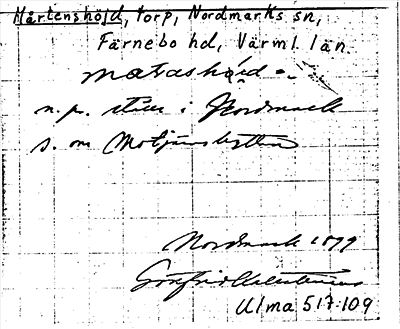 Mårtenshöjd, torp, Nordmarks sn,
Färnebo hd, Värml. län.
n.p. i Nordmark
s. om Motjärnshyttan
Nordmark 1899
Gottfrid Kallstenius
Ulma 517:109